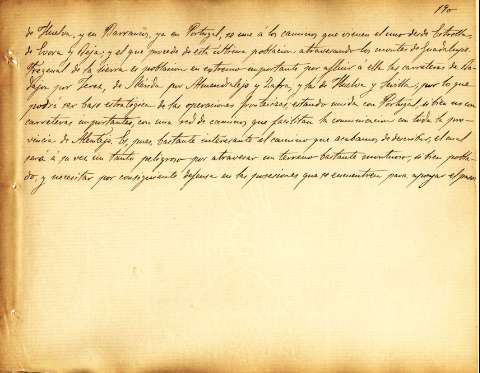 190
de Huelva, y en Barrancos, ya en Portugal, se une á los caminos que vienen el uno desde Estremoz
de Evora y Beja; y el que procede de esta última población atravesando los montes de Guadalupe.
Fregenal de la Sierra es población en extremo importante por afluir á ella las carreteras de Ba-
dajoz por Jerez, de Mérida por Almendralejo y Zafra, y las de Huelva y Sevilla; por lo que
podrá ser base estratégica de las operaciones fronterizas, estando unida con Portugal, si bien no con
carreteras importantes, con una red de caminos que facilitan la comunicación en toda la pro-
vincia de Alentejo. Es, pues, bastante interesante el camino que acabamos de describir, el cual
será á su vez un tanto peligroso por atravesar un terreno bastante montuoso, si bien pobla-
do, y necesitar por consiguiente defensa en las posesiones que se encuentren para apoyar el paso.